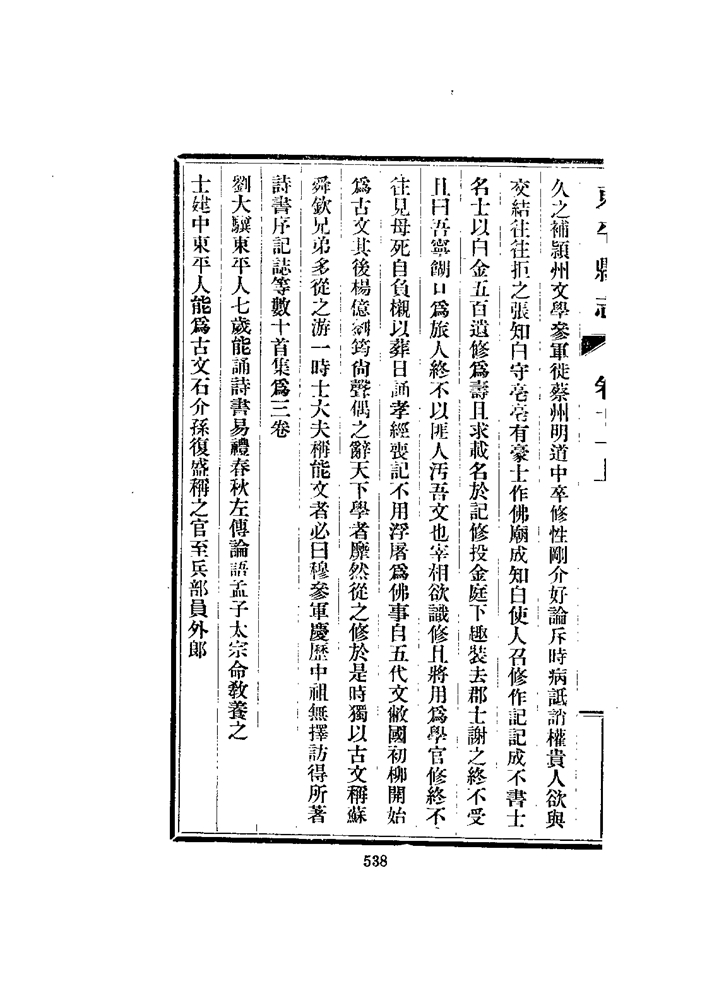 東平縣志 卷十一上
久之補潁州文學參軍徙蔡州明道中卒修性剛介好論斥時病詆誚權貴人欲與
交結往往拒之張知白守亳亳有豪士作佛廟成知白使人召修作記記成不書士
名士以白金五百遺修爲壽且求載名於記修投金庭下趣裝去郡士謝之終不受
且曰吾寧餬口爲旅人終不以匪人汚吾文也宰相欲識修且將用爲學官修終不
往見母死自負櫬以葬日誦孝經喪記不用浮屠爲佛事自五代文敝國初柳開始
爲古文其後楊億劉筠尙聲偶之辭天下學者靡然從之修於是時獨以古文稱蘇
舜欽兄弟多從之游一時士大夫稱能文者必曰穆參軍慶歷中祖無擇訪得所著
詩書序記誌等數十首集爲三卷
劉大驥東平人七歲能誦詩書易禮春秋左傳論語孟子太宗命敎養之
士建中東平人能爲古文石介孫復盛稱之官至兵部員外郎
538